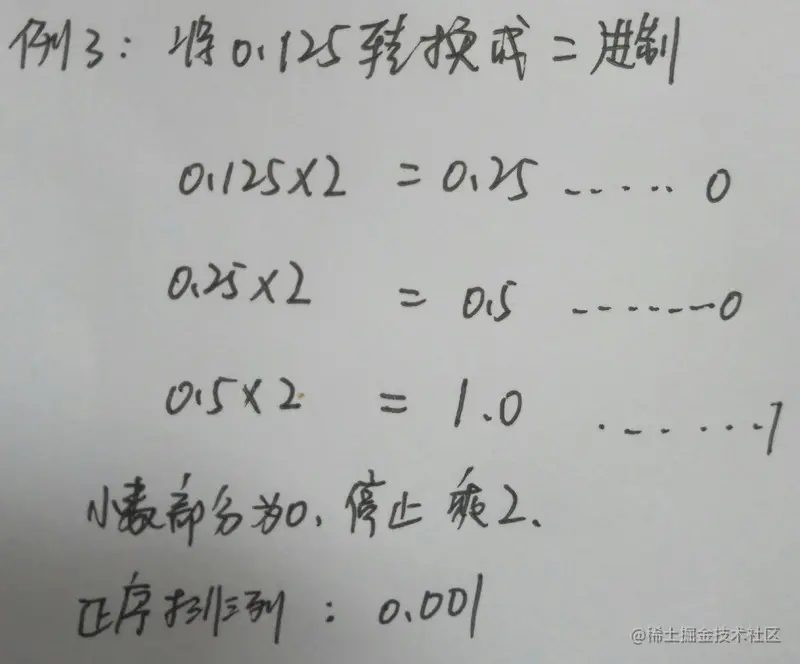 例3：将0.125转换成二进制
0.125×2 = 0.25 ...... 0
0.25×2 = 0.5 ....... 0
0.5×2 = 1.0 ....... 1
小数部分为0，停止乘2、
正序排列：0.001
@稀土掘金技术社区